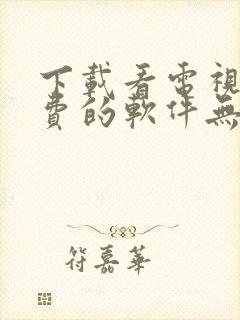 下載看電視
費的軟件無
符嘉華